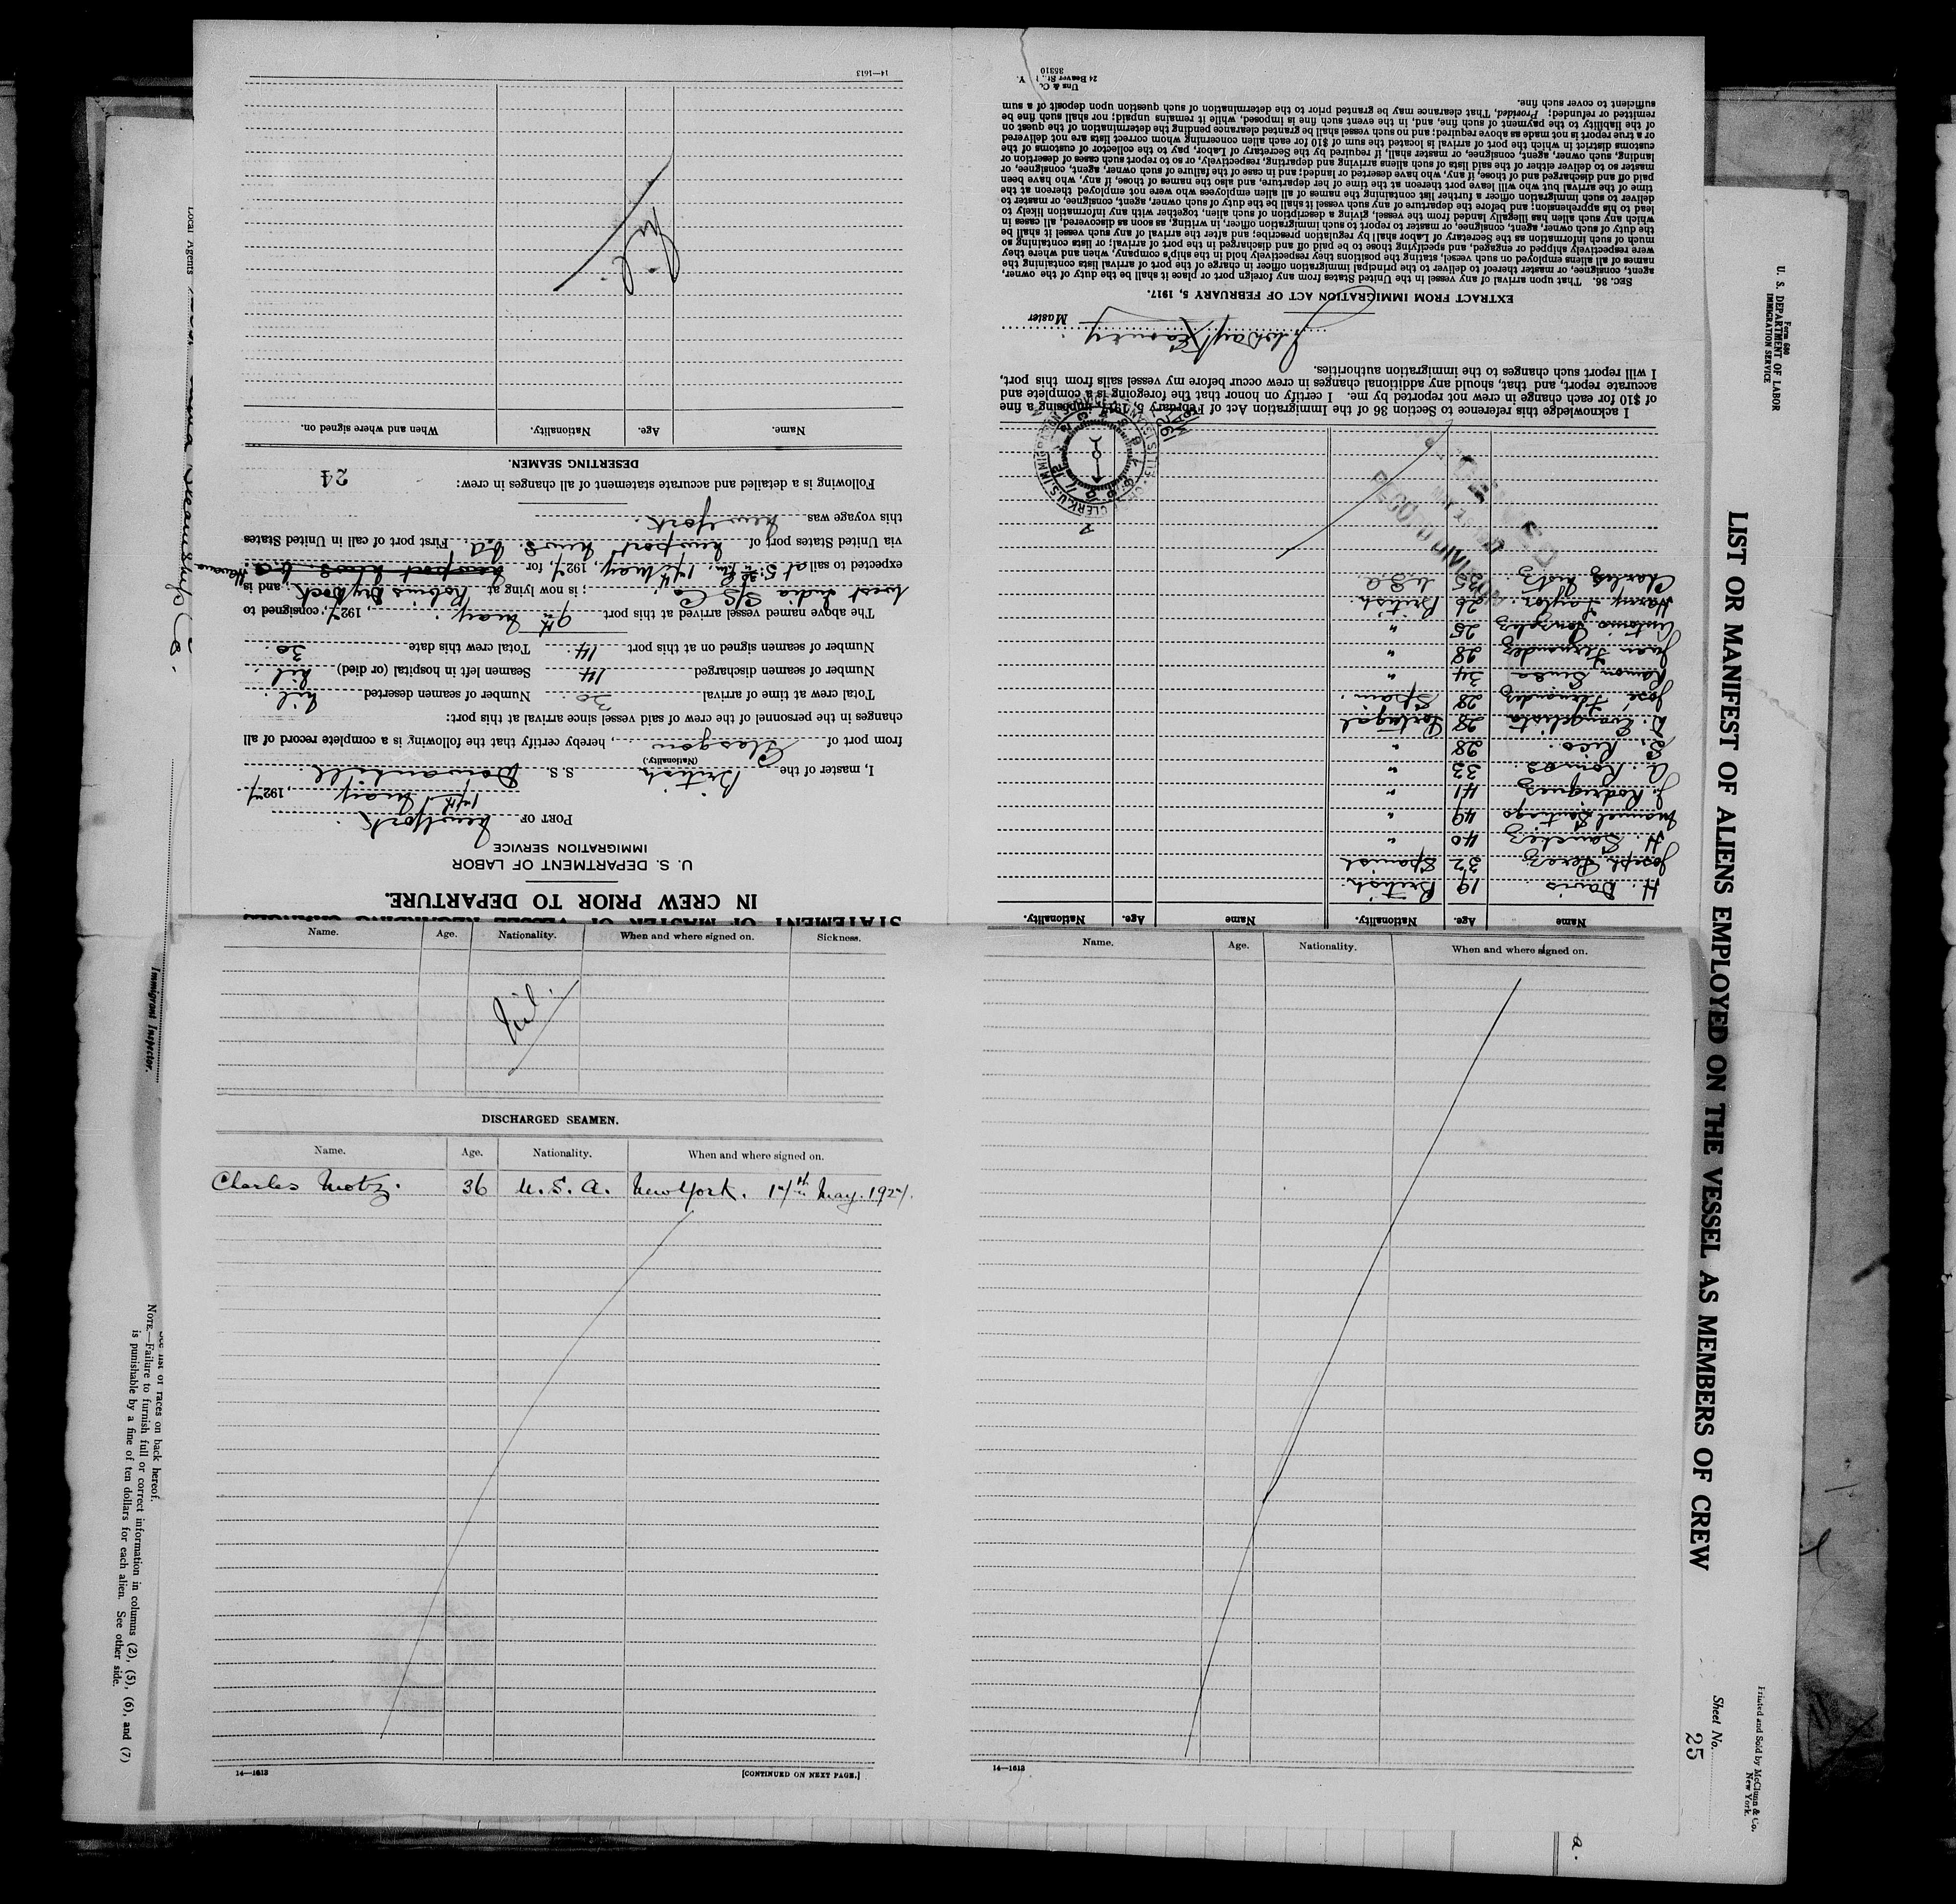 STATEMENT OF MASTER OF VESSEL REGARDING CHANGES
IN CREW PRIOR TO DEPARTURE.
U. S. DEPARTMENT OF LABOR
IMMIGRATION SERVICE
PORT OF New York.
14th May, 1927
I, master of the British S. S. Dowanhill
(Nationality.)
from port of Glasgow, hereby certify that the following is a complete record of all
changes in the personnel of the crew of said vessel since arrival at this port:
Total crew at time of arrival 30. Number of seamen deserted Nil
Number of seamen discharged 14 Seamen left in hospital (or died) Nil.
Number of seamen signed on at this port 14. Total crew this date 30.
The above named vessel arrived at this port 9th May, 1927, consigned to
West India S/S Co.; is now lying at Robins Dry Dock, and is
expected to sail at 5 P.m. 14th May, 1927, for Newport News. Va. Havana
via United States port of Newport News. Va First port of call in United States
this voyage was New York.
Following is a detailed and accurate statement of all changes in crew:
24
DESERTING SEAMEN.
Name. Age. Nationality. When and where signed on.
Nil
14—1613
Name Age. Nationality. Name Age. Nationality.
H. Davis. 19 British.
Joseph Perez 32 Spanish
H. Sanchez 40 "
Manuel Santiago 49 "
J. Rodriguez 41 "
A. Ramos 33 "
S. Rico. 28 "
D. Evangelista 28 Portugal
José Fernandez 28 Spain.
Ramon Sensa 34 "
Juan Fernandez 28 "
Antonio Gonzalez 25 "
Harry Taylor. 26 British.
Charles Motz 35 U.S.A.
I acknowledge this reference to Section 36 of the Immigration Act of February 5, 1917, imposing a fine
of $10 for each change in crew not reported by me. I certify on honor that the foregoing is a complete and
accurate report, and that, should any additional changes in crew occur before my vessel sails from this port,
I will report such changes to the immigration authorities.
Master
EXTRACT FROM IMMIGRATION ACT OF FEBRUARY 5, 1917.
SEC. 36. That upon arrival of any vessel in the United States from any foreign port or place it shall be the duty of the owner,
agent, consignee, or master thereof to deliver to the principal immigration officer in charge of the port of arrival lists containing the
names of all aliens employed on such vessel, stating the positions they respectively hold in the ship's company, when and where they
were respectively shipped or engaged, and specifying those to be paid off and discharged in the port of arrival; or lists containing so
much of such information as the Secretary of Labor shall by regulation prescribe; and after the arrival of any such vessel it shall be
the duty of such owner, agent, consignee, or master to report to such immigration officer, in writing, as soon as discovered, all cases in
which any such alien has illegally landed from the vessel, giving a description of such alien, together with any information likely to
lead to his apprehension; and before the departure of any such vessel it shall be the duty of such owner, agent, consignee, or master to
deliver to such immigration officer a further list containing the names of all alien employees who were not employed thereon at the
time of the arrival but who will leave port thereon at the time of her departure, and also the names of those, if any, who have been
paid off and discharged and of those, if any, who have deserted or landed; and in case of the failure of such owner, agent, consignee, or
master so to deliver either of the said lists of such aliens arriving and departing, respectively, or so to report such cases of desertion or
landing, such owner, agent, consignee, or master, shall, if required by the Secretary of Labor, pay to the collector of customs of the
customs district in which the port of arrival is located the sum of $10 for each alien concerning whom correct lists are not delivered
or a true report is not made as above required; and no such vessel shall be granted clearance pending the determination of the question
of the liability to the payment of such fine, and, in the event such fine is imposed, while it remains unpaid; nor shall such fine be
remitted or refunded; Provided, That clearance may be granted prior to the determination of such question upon deposit of a sum
sufficient to cover such fine.
Unz & Co.
24 Beaver St., N. Y.
35310
Name. Age. Nationality. When and where signed on. Sickness.
Nil.
DISCHARGED SEAMEN.
Name. Age. Nationality. When and where signed on.
Charles Motz. 36 U. S. A. New York. 14th May. 1927.
14—1613 [CONTINUED ON NEXT PAGE.]
Name. Age. Nationality. When and where signed on.
14—1613
Form 680
U. S. DEPARTMENT OF LABOR
IMMIGRATION SERVICE
LIST OR MANIFEST OF ALIENS EMPLOYED ON THE VESSEL AS MEMBERS OF CREW
Sheet No.
25
Printed and Sold by McClunn & Co.
New York.
Local Agents
Steamship Co.
Immigrant Inspector.
See list of races on back hereof.
NOTE.—Failure to furnish full or correct information in columns (2), (5), (6), and (7)
is punishable by a fine of ten dollars for each alien. See other side.
a.